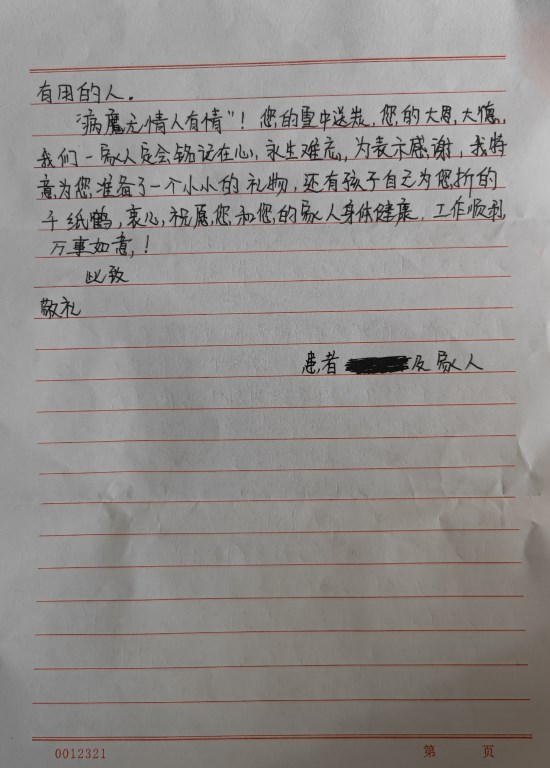 有用的人。
“病魔无情人有情”！您的雪中送炭，您的大恩，大德，
我们一家人定会铭记在心，永生难忘，为表示感谢，我特
意为您准备了一个小小的礼物，还有孩子自己为您折的
千纸鹤，衷心祝愿您和您的家人身体健康，工作顺利
万事如意，！
此致
敬礼
患者 及家人
0012321 第 页